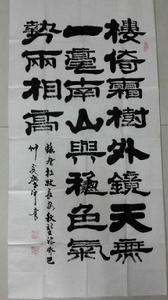 樓倚霜樹外鏡天無
一毫南山與穐色氣
勢兩相高
錄唐杜牧長安秋望